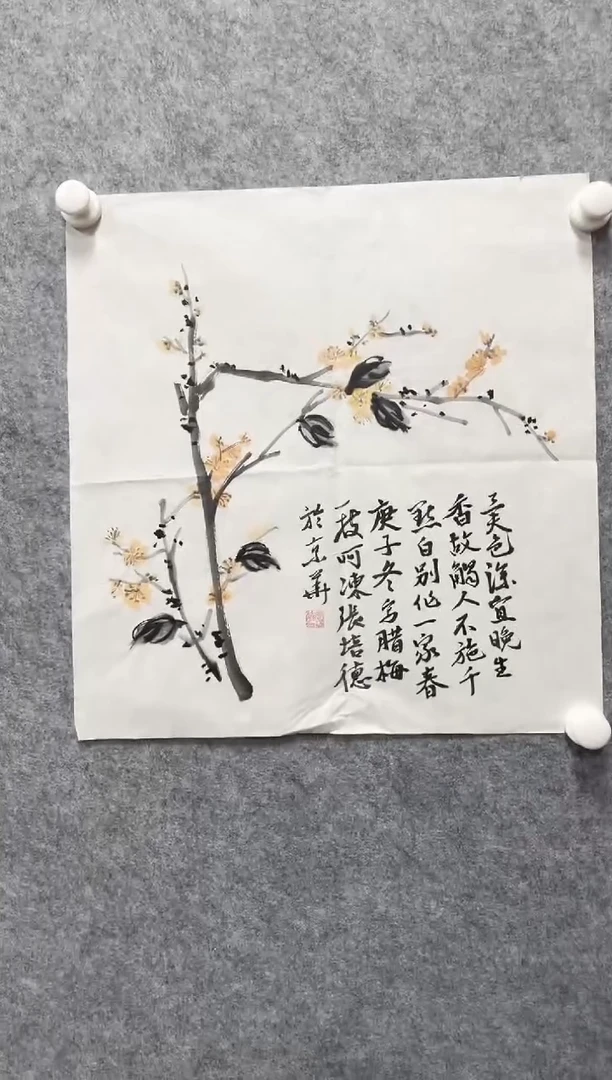 異色深宜晚生
香故觸人不施千
點白別作一家春
庚子冬寫腊梅
一枝呵凍張培德
於京華